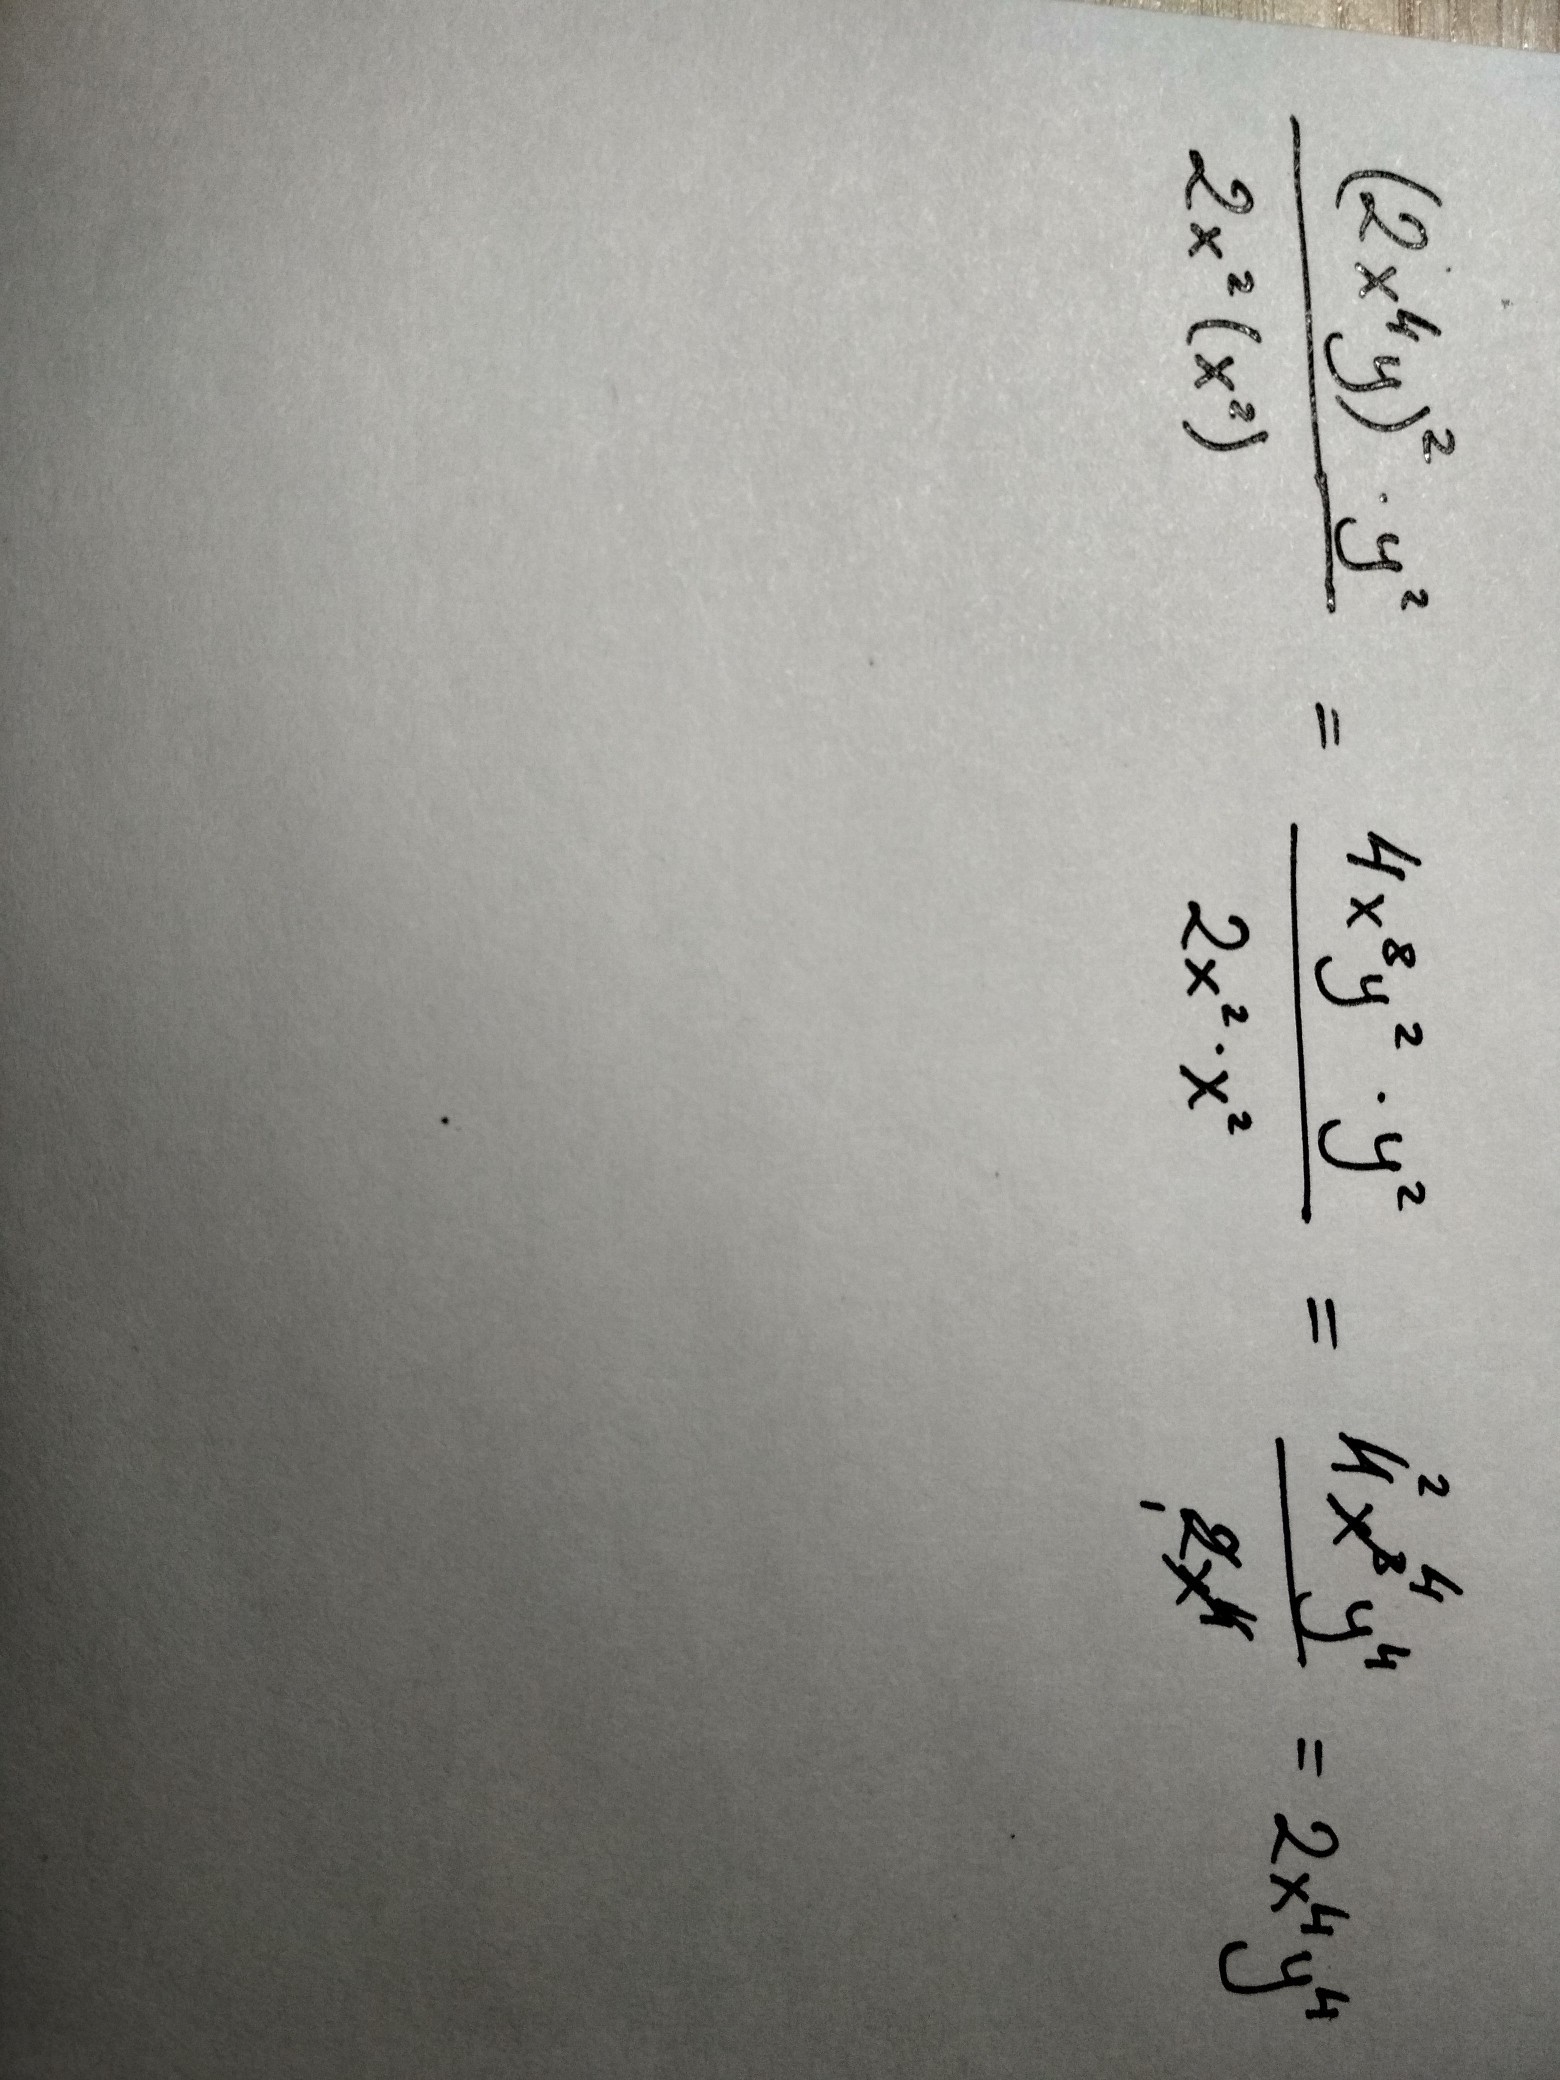 (2x⁴y)² · y² / 2x²(x²) = 4x⁸y² · y² / 2x² · x² = 4²x⁸⁴y⁴ / ₁2x⁴ = 2x⁴y⁴